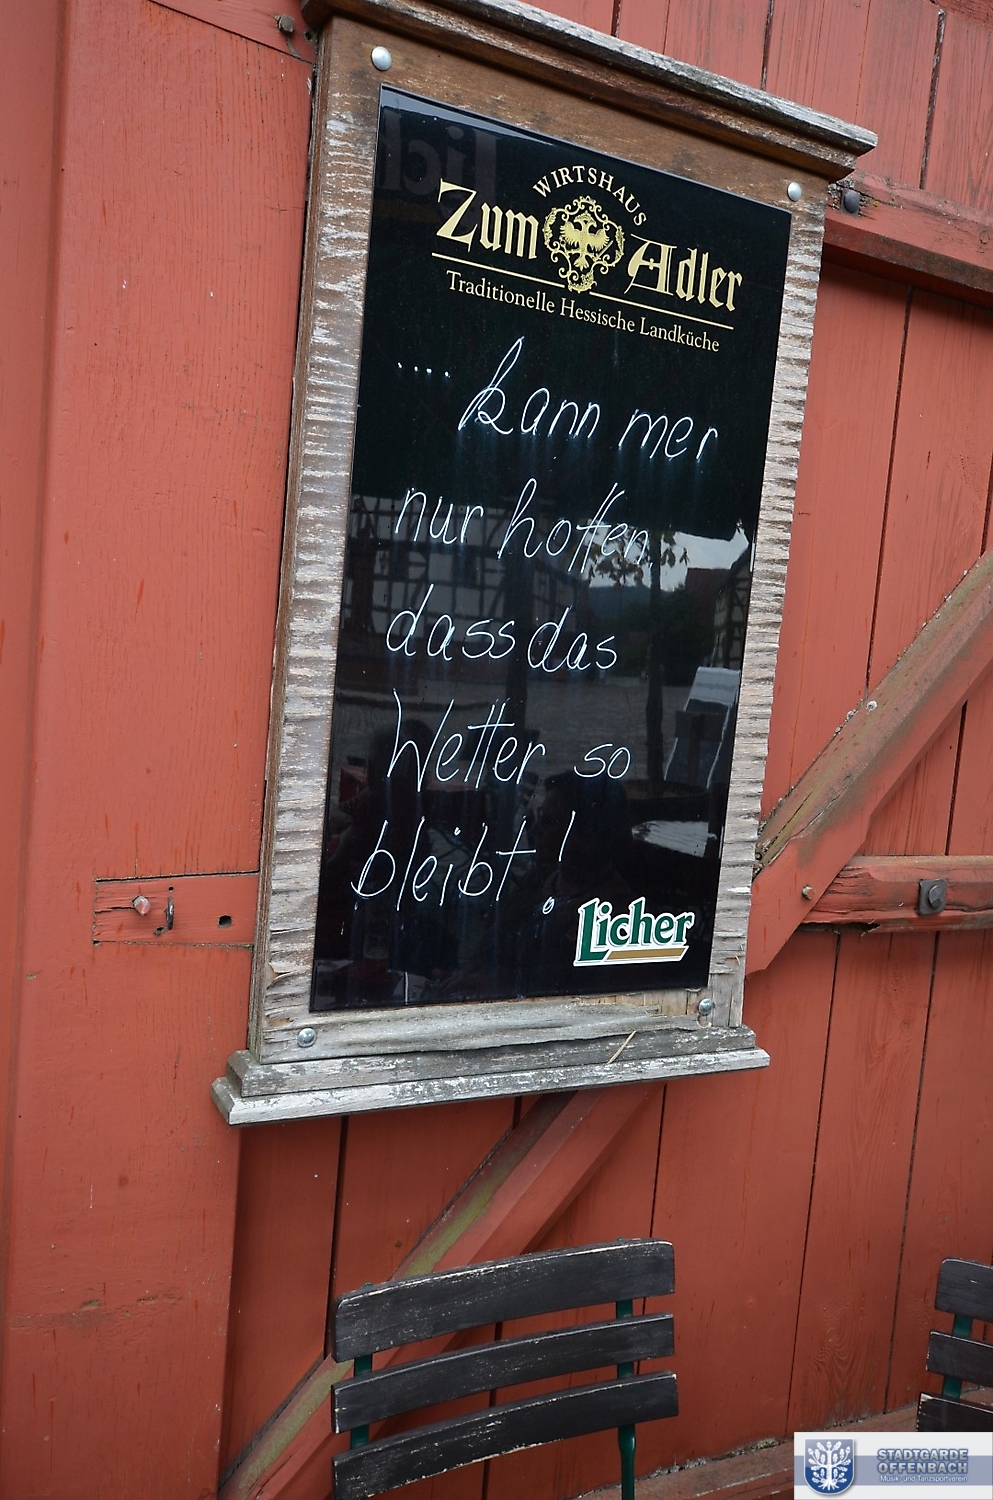 WIRTSHAUS
Zum Adler
Traditionelle Hessische Landküche
.... kann mer
nur hoffen
dass das
Wetter so
bleibt!
Licher
STADTGARDE
OFFENBACH
Musik- und Tanzsportverein